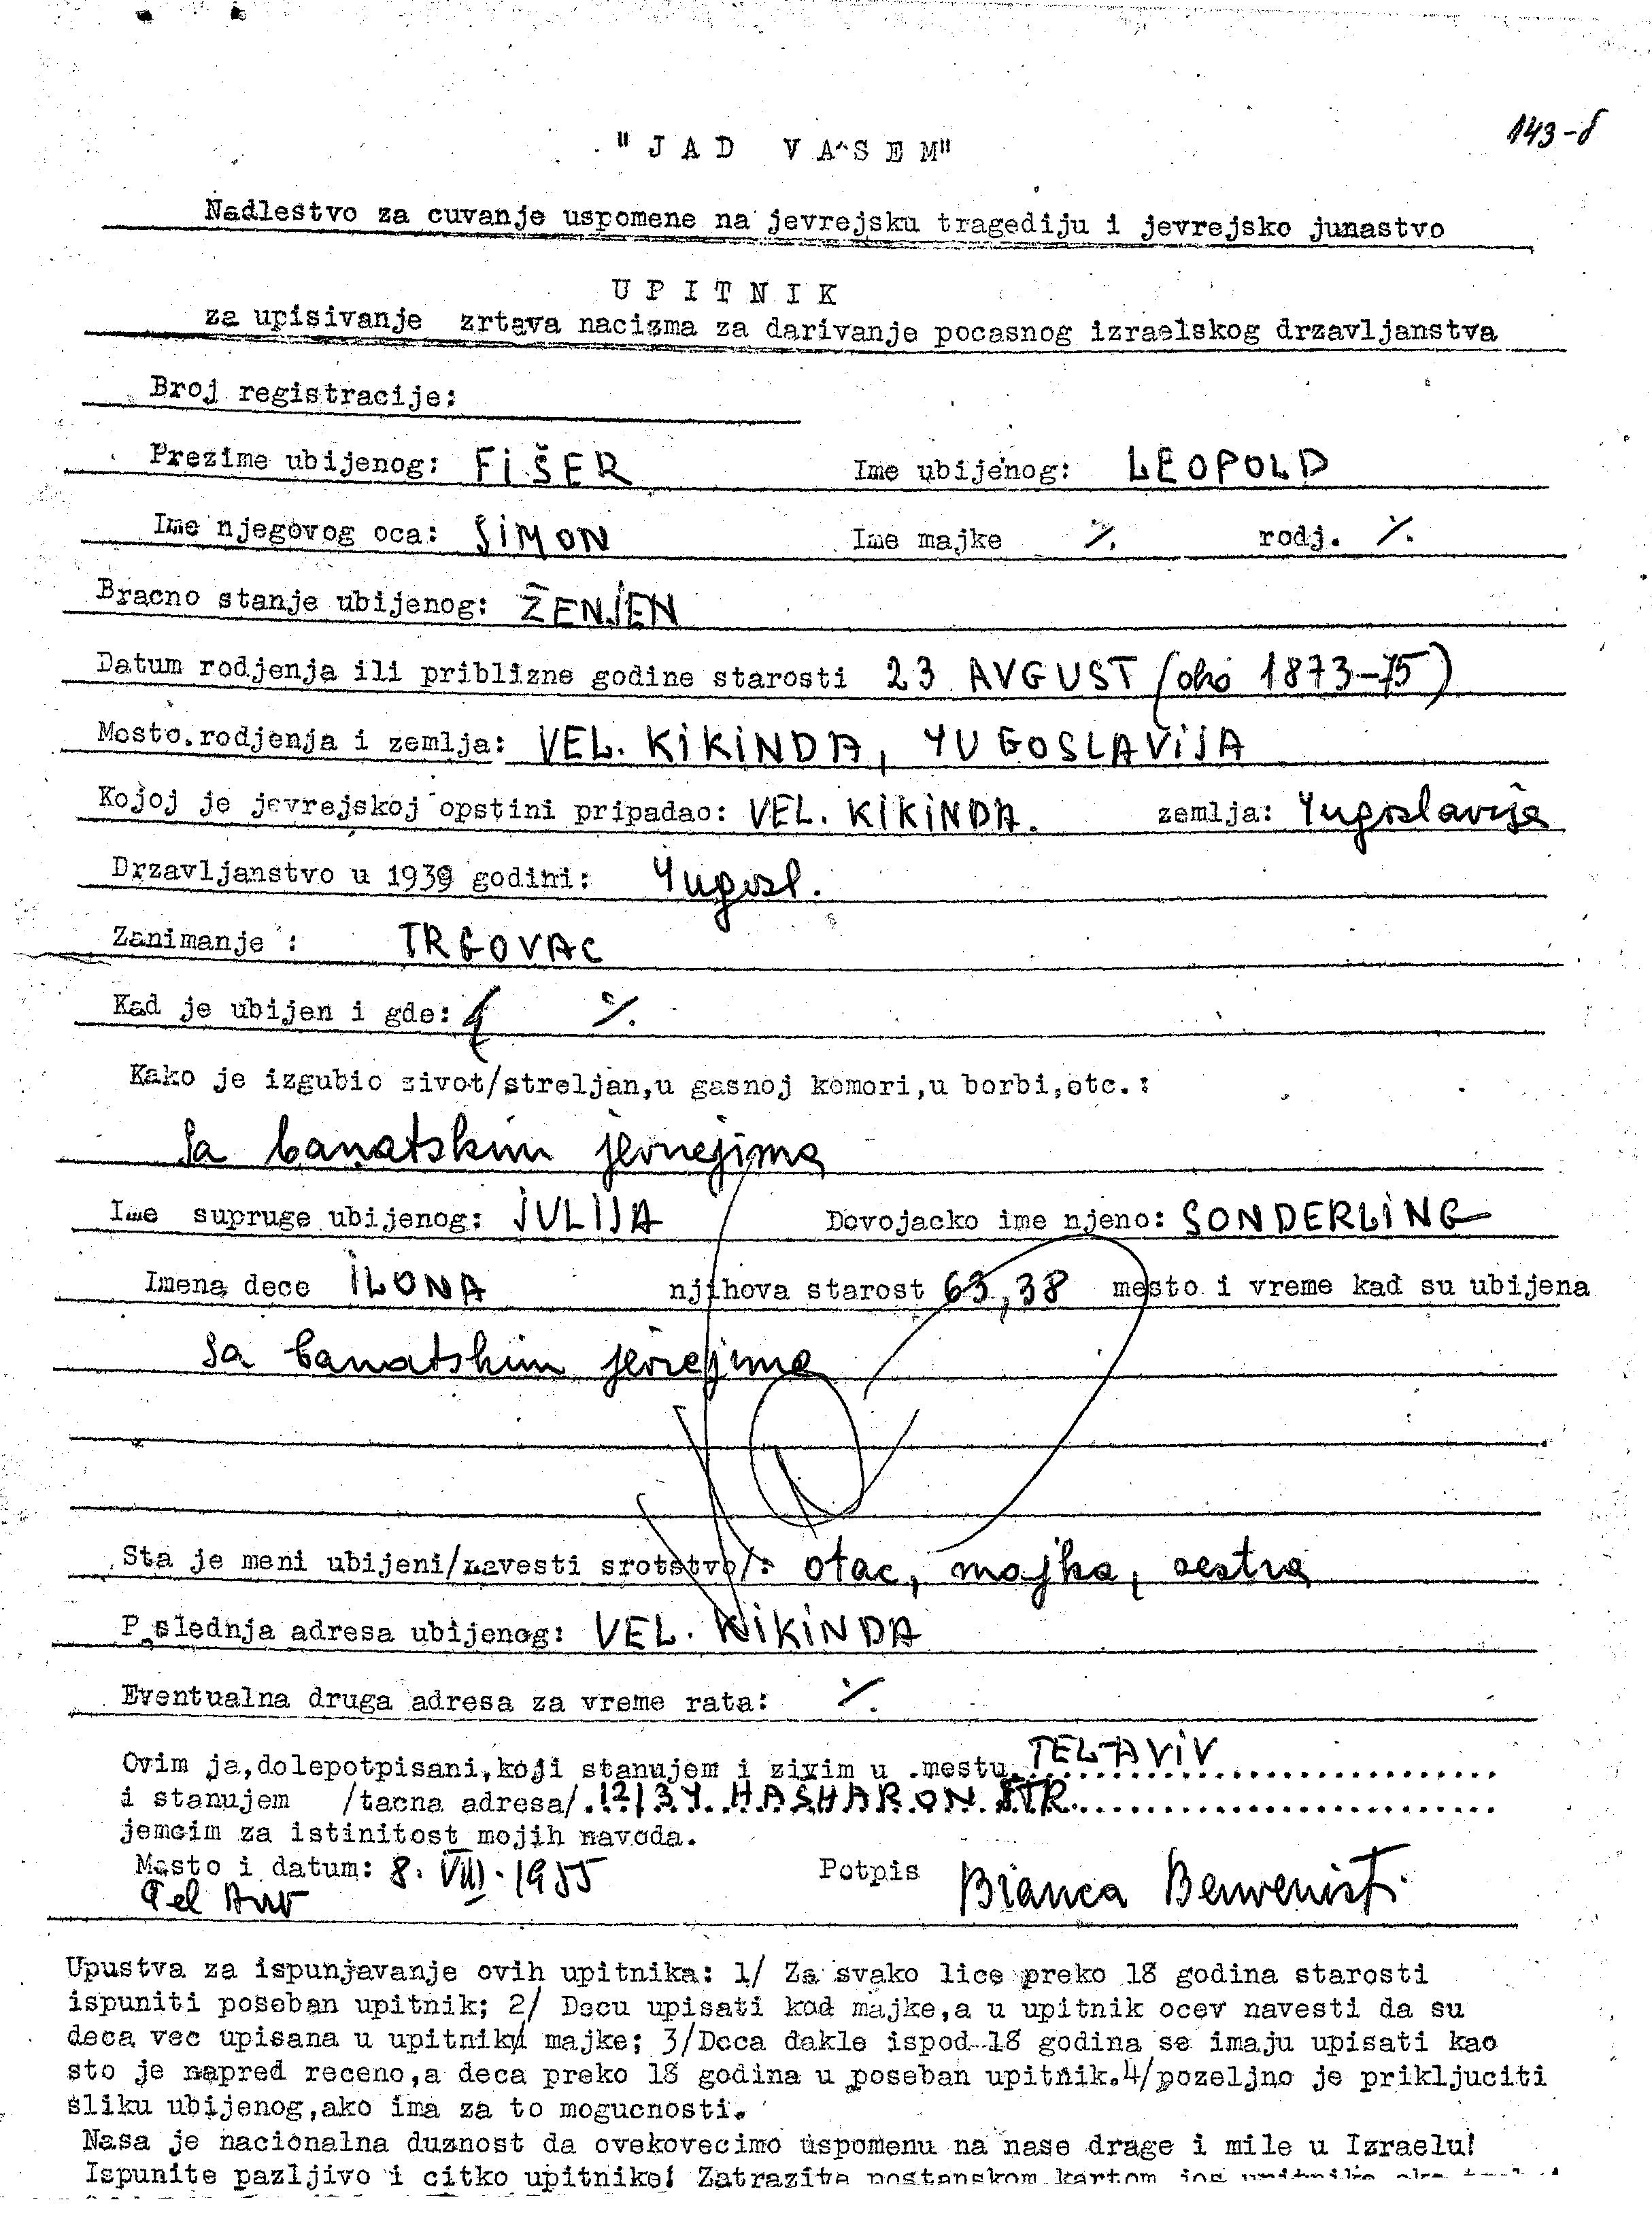 143-8
"JAD VA^SEM"
Nadlestvo za cuvanje uspomene na jevrejsku tragediju i jevrejsko junastvo
UPITNIK
za upisivanje zrtava nacizma za darivanje pocasnog izraelskog drzavljanstva
Broj registracije:
Prezime ubijenog: FIŠER Ime ubijenog: LEOPOLD
Ime njegovog oca: SIMON Ime majke ⁒ rodj. ⁒
Bracno stanje ubijenog: ŽENJEN
Datum rodjenja ili priblizne godine starosti 23 AVGUST (oko 1873-75)
Mesto.rodjenja i zemlja: VEL. KIKINDA, YUGOSLAVIJA
Kojoj je jevrejskoj opstini pripadao: VEL. KIKINDA. zemlja: Yugoslavija
Drzavljanstvo u 1939 godini: Yugosl.
Zanimanje : TRGOVAC
Kad je ubijen i gde: ⁒
Kako je izgubio zivot/streljan,u gasnoj komori,u borbi,etc.:
Sa banatskim jevrejima
Ime supruge ubijenog: JULIJA Devojacko ime njeno: SONDERLING
Imena dece ILONA njihova starost 63,38 mesto i vreme kad su ubijena
Sa banatskim jevrejima
Sta je meni ubijeni/navesti srotstvo/: otac, majka, sestra
P slednja adresa ubijenog: VEL. KIKINDA
Eventualna druga adresa za vreme rata: ⁒
Ovim ja,dolepotpisani,koji stanujem i zivim u .mestu TEL-AVIV
i stanujem /tacna adresa/ 12/34 HASHARON STR.
jemcim za istinitost mojih navoda.
Mesto i datum: 8. VIII. 1955 Potpis Bianca Benvenisti
Tel Aviv
Upustva za ispunjavanje ovih upitnika: 1/ Za svako lice preko 18 godina starosti
ispuniti poseban upitnik; 2/ Decu upisati kod majke,a u upitnik ocev navesti da su
deca vec upisana u upitniku majke; 3/Deca dakle ispod 18 godina se imaju upisati kao
sto je napred receno,a deca preko 18 godina u poseban upitnik.4/pozeljno je prikljuciti
sliku ubijenog,ako ima za to mogucnosti.
Nasa je nacionalna duznost da ovekovecimo uspomenu na nase drage i mile u Izraelu!
Ispunite pazljivo i citko upitnike! Zatrazite postanskom kartom jos upitnika ako